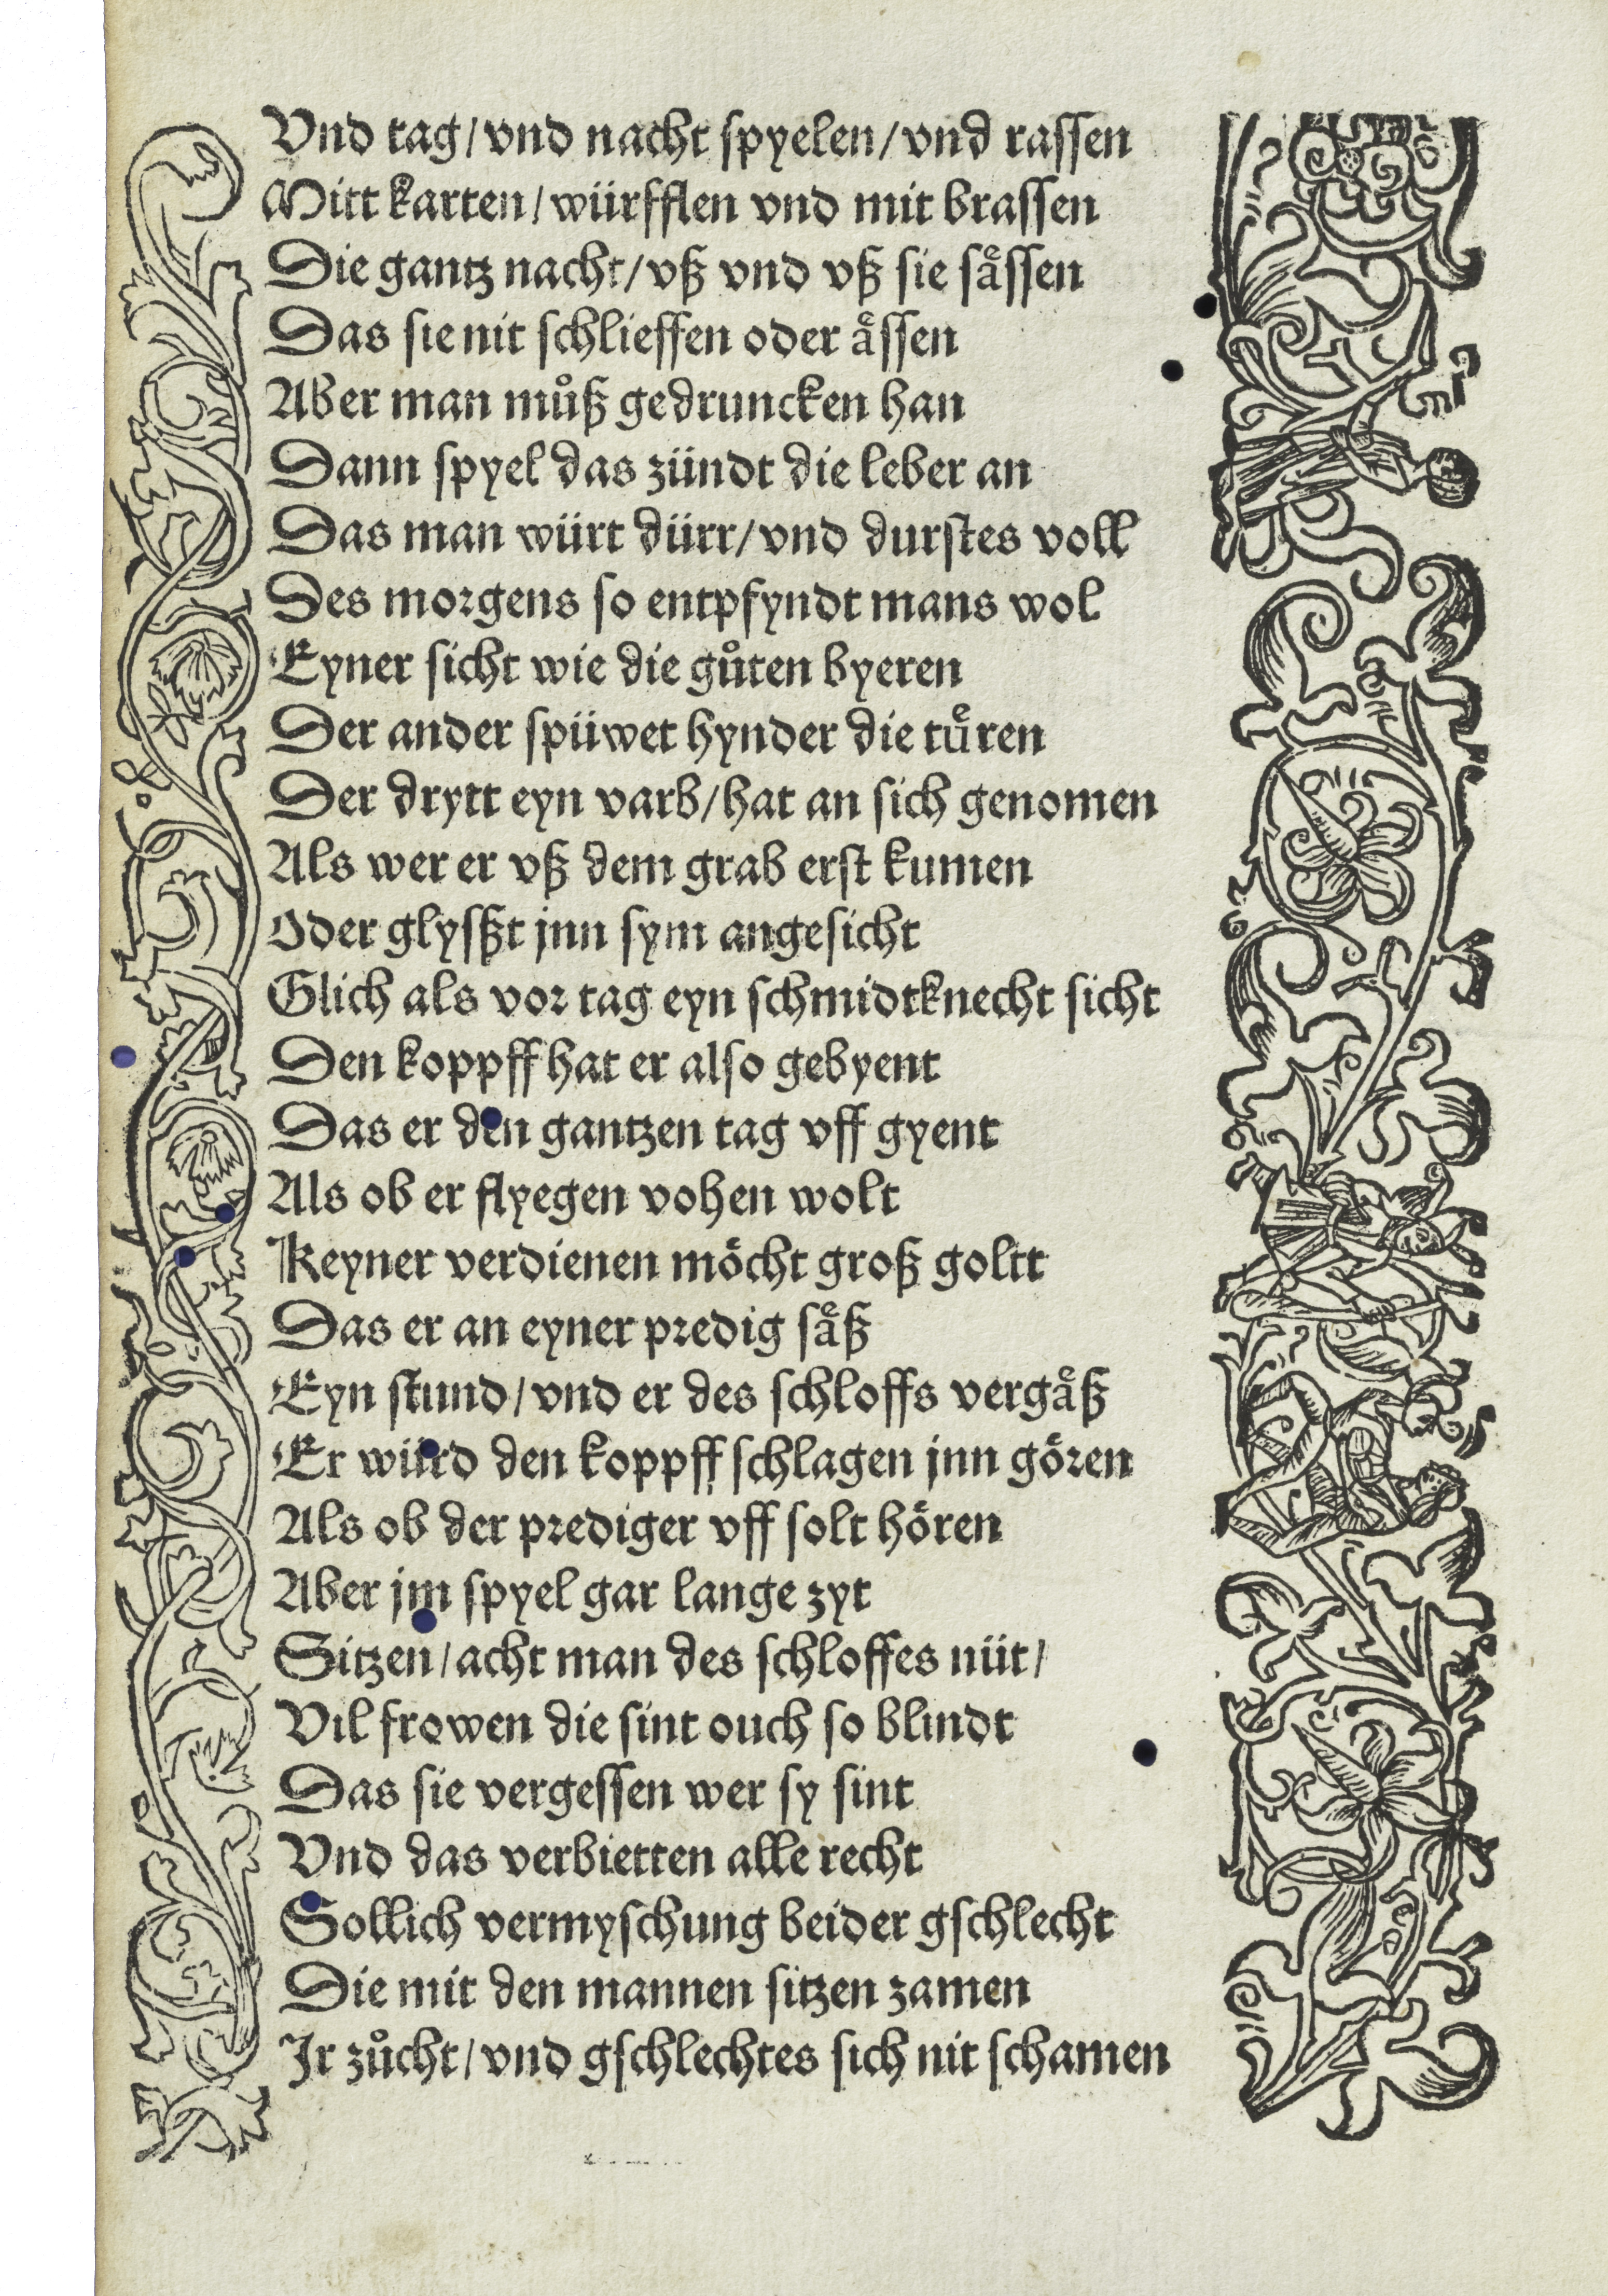 Vnd tag/ vnd nacht spyelen/ vnd rassen
Mitt karten/ würfflen vnd mit brassen
Die gantz nacht/ vß vnd vß sie saͤssen
Das sie nit schlieffen oder aͤssen
Aber man muͦß gedruncken han
Dann spyel das zündt die leber an
Das man würt dürr/ vnd durstes voll
Des morgens so entpfyndt mans wol
Eyner sicht wie die guͦten byeren
Der ander spüwet hynder die tuͤren
Der drytt eyn varb/ hat an sich genomen
Als wer er vß dem grab erst kumen
Oder glysßt jnn sym angesicht
Glich als vor tag eyn schmidtknecht sicht
Den koppff hat er also gebyent
Das er den gantzen tag vff gyent
Als ob er flyegen vohen wolt
Keyner verdienen moͤcht groß goltt
Das er an eyner predig saͤß
Eyn stund/ vnd er des schloffs vergaͤß
Er würd den koppff schlagen jnn goͤren
Als ob der prediger vff solt hoͤren
Aber jm spyel gar lange zyt
Sitzen/ acht man des schloffes nüt/
Vil frowen die sint ouch so blindt
Das sie vergessen wer sy sint
Vnd das verbietten alle recht
Sollich vermyschung beider gschlecht
Die mit den mannen sitzen zamen
Jr zuͦcht/ vnd gschlechtes sich nit schamen